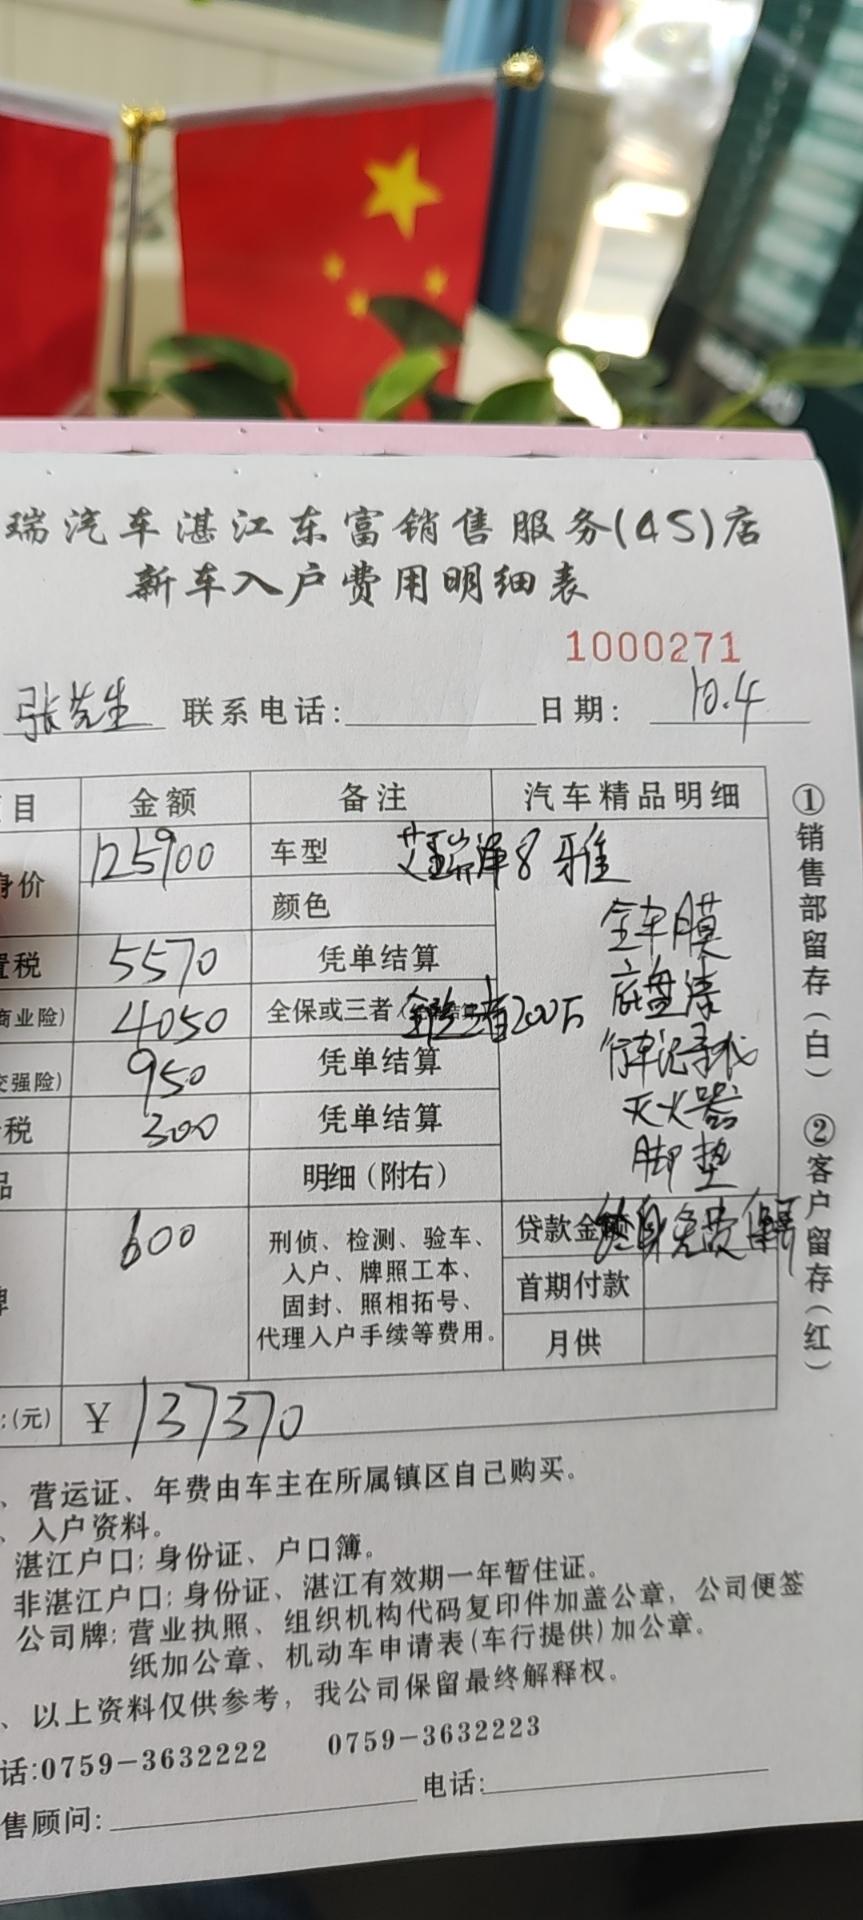 瑞汽车湛江东富销售服务(4S)店
新车入户费用明细表
1000271
张先生 联系电话: 日期: 10.4
目 金额 备注 汽车精品明细
身价 125900 车型 艾瑞泽8 雅
颜色
全车膜
置税 5570 凭单结算
底盘漆
商业险) 4050 全保或三者 全险三者200万
行车记录仪
交强险) 950 凭单结算
灭火器
税 300 凭单结算
脚垫
品 明细(附右)
600 刑侦、检测、验车、
入户、牌照工本、
固封、照相拓号、
代理入户手续等费用。
贷款金额 终身免费保养
首期付款
月供
:(元) ¥ 137370
①销售部留存(白) ②客户留存(红)
、营运证、年费由车主在所属镇区自己购买。
、入户资料。
湛江户口: 身份证、户口簿。
非湛江户口: 身份证、湛江有效期一年暂住证。
公司牌: 营业执照、组织机构代码复印件加盖公章, 公司便签
纸加公章、机动车申请表(车行提供)加公章。
、以上资料仅供参考, 我公司保留最终解释权。
话:0759-3632222 0759-3632223
售顾问: 电话: